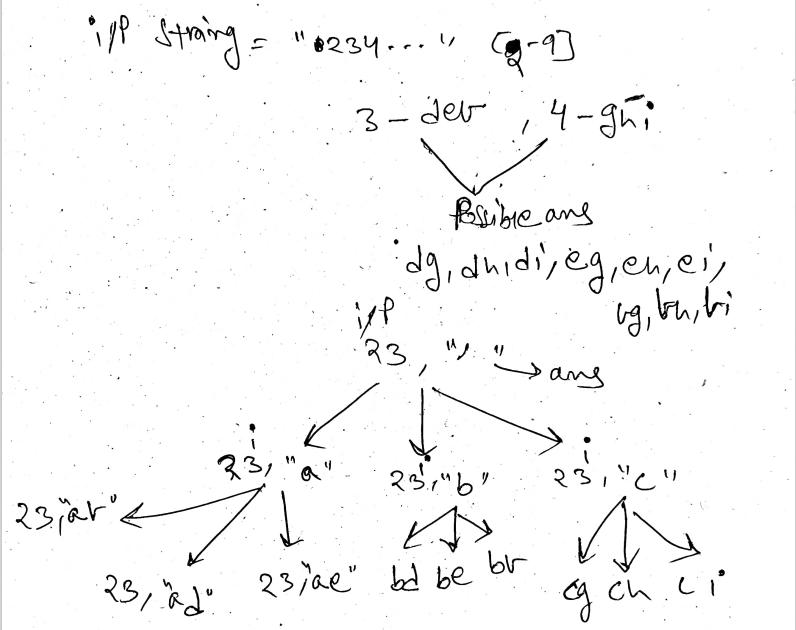 i/p string = "0234..." [2-9]
3 - def , 4 - ghi
Possible ans
dg, dh, di, eg, eh, ei,
fg, fh, fi
i/p
23, " " → ans
i i i
23, "a" 23, "b" 23, "c"
23, "af" 23, "ad" 23, "ae" bd be bf cg ch ci